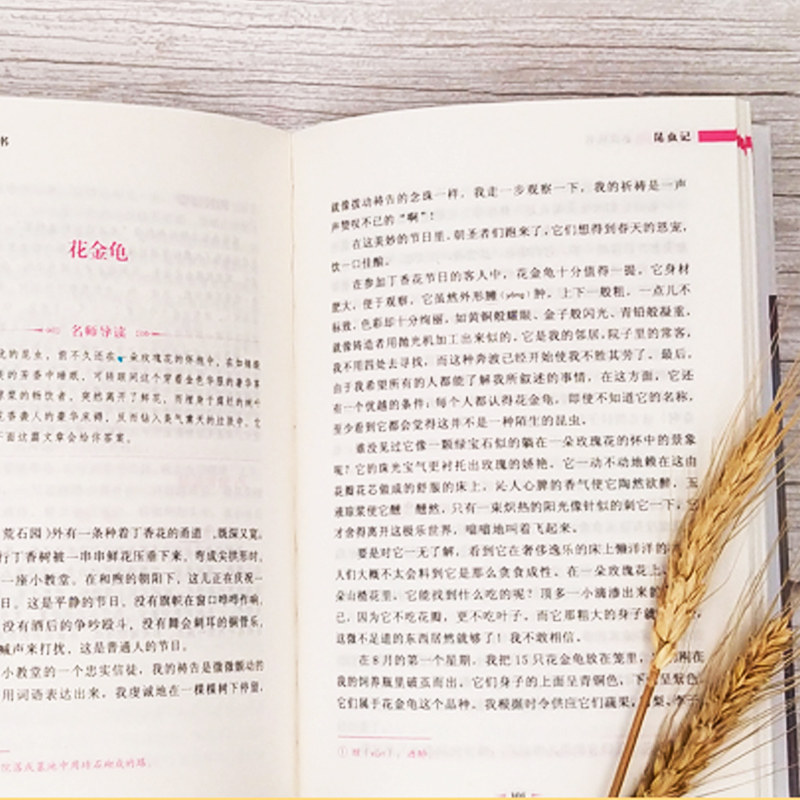 书
花金龟
名师导读
的昆虫，前不久还在一朵玫瑰花的怀抱中，在如锦般
的芳香中睡眠，可转眼间这个穿着金色华服的奢华客
浆的畅饮者，突然离开了鲜花，而埋身于腐烂的树叶
香袭人的豪华床褥，反而钻入臭气熏天的垃圾中，它
面这篇文章会给你答案。
荒石园》外有一条种着丁香花的甬道，既深又宽。
行丁香树被一串串鲜花压垂下来，弯成尖拱形时，
一座小教堂。在和煦的朝阳下，这儿正在庆祝一
日。这是平静的节日，没有旗帜在窗口哗哗作响，
没有酒后的争吵殴斗，没有舞会刺耳的铜管乐，
喊声来打扰，这是普通人的节日。
小教堂的一个忠实信徒，我的祷告是微微颤动的
用词语表达出来。我虔诚地在一棵棵树下停留，
昆虫记
就像拨动祷告的念珠一样，我走一步观察一下，我的祈祷是一声
声赞叹不已的“啊”！
在这美妙的节日里，朝圣者们跑来了，它们想得到春天的恩宠，
饮一口佳酿。
在参加丁香花节日的客人中，花金龟十分值得一提。它身材
肥大，便于观察，它虽然外形臃（yōng）肿，上下一般粗，一点儿不
标致，色彩却十分绚丽，如黄铜般耀眼、金子般闪光、青铅般凝重，
就像铸造者用抛光机加工出来似的。它是我的邻居，院子里的常客，
我不用四处去寻找，而这种奔波已经开始使我不胜其劳了。最后，
由于我希望所有的人都能了解我所叙述的事情，在这方面，它还
有一个优越的条件：每个人都认得花金龟，即使不知道它的名称，
至少看到它都会觉得这并不是一种陌生的昆虫。
谁没见过它像一颗绿宝石似的躺在一朵玫瑰花的怀中的景象
呢？它的珠光宝气更衬托出玫瑰的娇艳。它一动不动地赖在这由
花瓣花芯做成的舒服的床上，沁人心脾的香气使它陶然欲醉，玉
液琼浆使它醺醺然，只有一束炽热的阳光像针似的刺它一下，它
才舍得离开这极乐世界，嗡嗡地叫着飞起来。
要是对它一无了解，看到它在奢侈逸乐的床上懒洋洋的
人们大概不太会料到它是那么贪食成性。在一朵玫瑰花上、
朵山楂花里，它能找到什么吃的呢？顶多一小滴渗出来的
已，因为它不吃花瓣，更不吃叶子。而它那粗大的身子就
这微不足道的东西居然就够了！我不敢相信。
在8月的第一个星期，我把15只花金龟放在笼里，刚在
我的饲养瓶里破茧而出。它们身子的上面呈青铜色，下呈紫色
它们属于花金龟这个品种。我根据时令供应它们蔬果，梨、李子